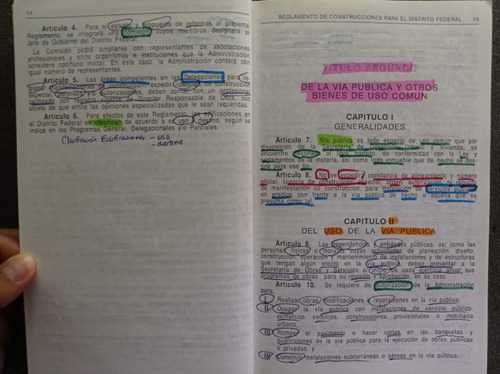 14
Artículo 4. Para el estudio y propuesta de reformas al presente
Reglamento, se integrará una cuyos miembros designará el
Jefe de Gobierno del Distrito Federal.
La Comisión podrá ampliarse con representantes de asociaciones
profesionales y otros organismos e instituciones que la Administración
considere oportuno invitar. En este caso, la Administración contará con
igual número de representantes.
Artículo 5. Las áreas competentes en las Delegaciones para
expedir
deben contar con un profesional
Director Responsable de Obra, con
objeto de que emita las opiniones especializadas que le sean requeridas.
Artículo 6. Para efectos de este Reglamento, las edificaciones en
el Distrito Federal se clasifican de acuerdo a su uso y destino, según se
indica en los Programas General, Delegacionales y/o Parciales.
Clasificación Edificaciones - uso
- destino
REGLAMENTO DE CONSTRUCCIONES PARA EL DISTRITO FEDERAL 15
TITULO SEGUNDO
DE LA VIA PUBLICA Y OTROS
BIENES DE USO COMUN
CAPITULO I
GENERALIDADES
Artículo 7. Vía pública es todo espacio de uso común que por
disposición de la Vivienda, se
encuentre al libre tránsito, de conformidad con la Ley y
reglamentos de la materia, así como todo inmueble que de hecho se
para ese fin.
Artículo 8. No se expedirá constancia de alineamiento y número
oficial, licencia de construcción
de manifestación de construcción, para
en predios con frente a la vía pública de hecho o aquella que se
presuma como tal.
CAPITULO II
DEL USO DE LA VIA PUBLICA
Artículo 9. Las dependencias y entidades públicas, así como las
personas físicas o morales cuyas actividades de planeación, diseño,
construcción, operación y mantenimiento de instalaciones y de estructuras
que tengan algún efecto en la vía pública, deben presentar a la
Secretaría de Obras y Servicios al inicio de cada ejercicio anual sus
programas de obras para su revisión y aprobación, en su caso.
Artículo 10. Se requiere de autorización de la Administración para:
I Realizar obras, modificaciones o reparaciones en la vía pública;
II Ocupar la vía pública con instalaciones de servicio público,
comercios semifijos, construcciones provisionales o mobiliario
urbano;
III Romper el pavimento o hacer cortes en las banquetas y
guarniciones de la vía pública para la ejecución de obras públicas
o privadas, y
IV Construir instalaciones subterráneas o aéreas en la vía pública.